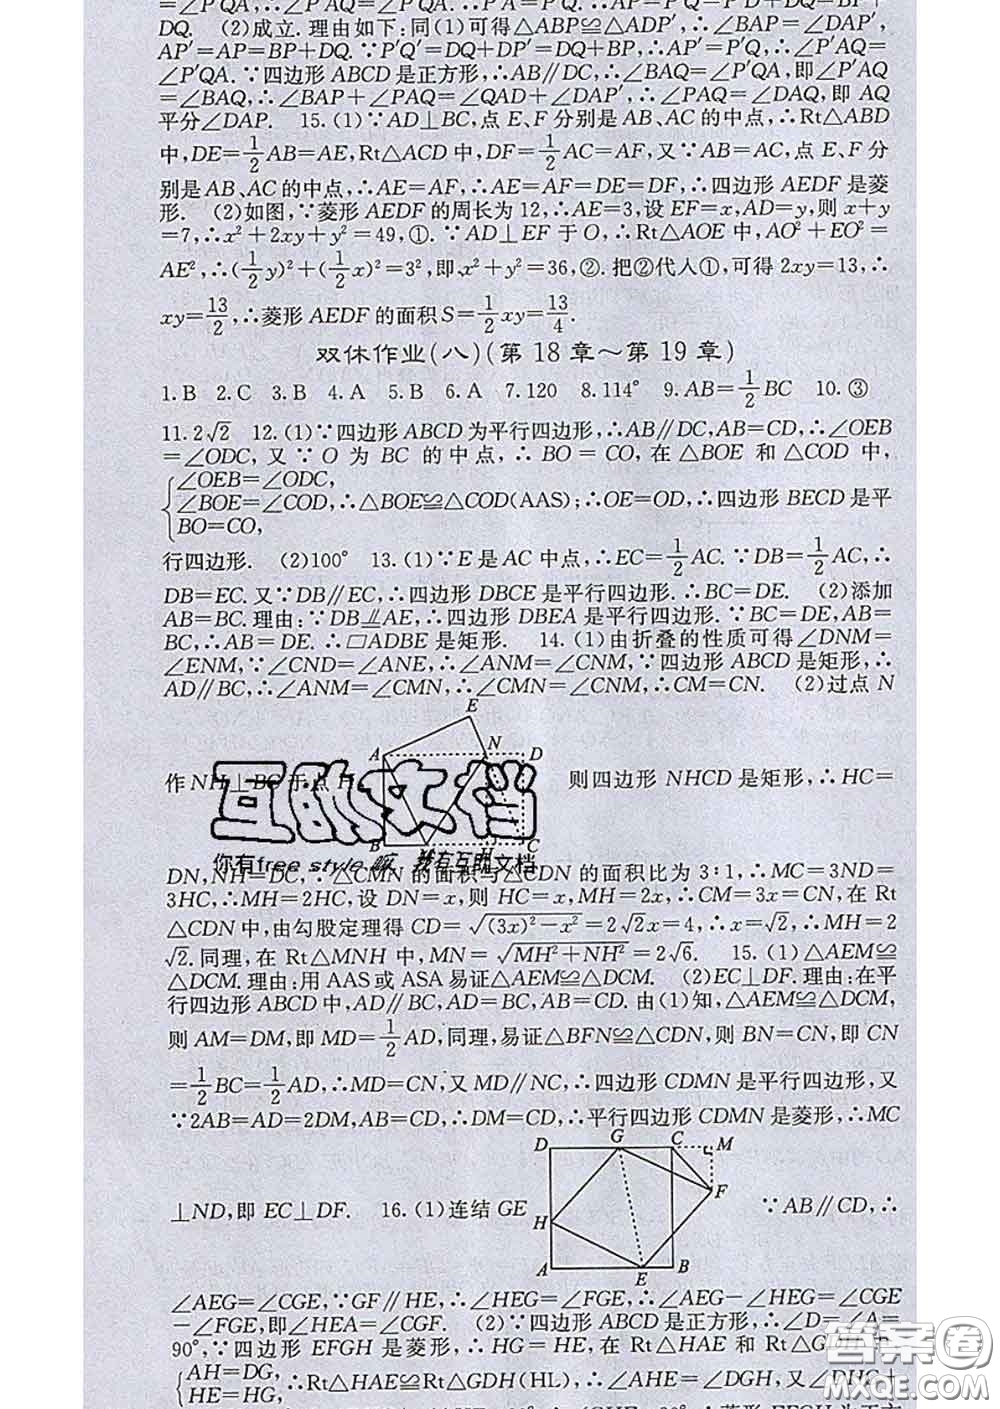 =∠P′QA,∴∠P′AQ=∠P′QA.∴P′A=P′Q.
DQ. (2)成立.理由如下:同(1)可得△ABP≌△ADP′,∴∠BAP=∠DAP′,
AP′=AP=BP+DQ.∵P′Q′=DQ+DP′=DQ+BP,∴AP′=P′Q,∴∠P′AQ=
∠P′QA.∵四边形ABCD是正方形,∴AB∥DC,∴∠BAQ=∠P′QA,即∠P′AQ
=∠BAQ,∴∠BAP+∠PAQ=∠QAD+∠DAP′,∴∠PAQ=∠DAQ,即 AQ
平分∠DAP. 15.(1)∵AD⊥BC,点 E、F 分别是 AB、AC 的中点,∴Rt△ABD
中,DE=1/2AB=AE,Rt△ACD 中,DF=1/2AC=AF,又∵AB=AC,点 E、F 分
别是 AB、AC 的中点,∴AE=AF,∴AE=AF=DE=DF,∴四边形 AEDF 是菱
形. (2)如图,∵菱形 AEDF 的周长为 12,∴AE=3,设 EF=x,AD=y,则 x+y
=7,∴x²+2xy+y²=49,①.∵AD⊥EF 于 O,∴Rt△AOE 中,AO²+EO²=
AE²,∴(1/2y)²+(1/2x)²=3²,即 x²+y²=36,②.把②代人①,可得 2xy=13,∴
xy=13/2,∴菱形 AEDF 的面积 S=1/2xy=13/4.
双休作业(八)(第 18 章～第 19 章)
1.B 2.C 3.B 4.A 5.B 6.A 7.120 8.114° 9.AB=1/2BC 10.③
11.2√2 12.(1)∵四边形 ABCD 为平行四边形,∴AB∥DC,AB=CD,∴∠OEB
=∠ODC,又∵O 为 BC 的中点,∴BO=CO,在△BOE 和△COD 中,
∠OEB=∠ODC,
∠BOE=∠COD,∴△BOE≌△COD(AAS);∴OE=OD,∴四边形 BECD 是平
BO=CO,
行四边形. (2)100° 13.(1)∵E 是 AC 中点,∴EC=1/2AC.∵DB=1/2AC,∴
DB=EC.又∵DB∥EC,∴四边形 DBCE 是平行四边形.∴BC=DE. (2)添加
AB=BC.理由:∵DB⫫AE,∴四边形 DBEA 是平行四边形.∵BC=DE,AB=
BC,∴AB=DE.∴□ADBE 是矩形. 14.(1)由折叠的性质可得∠DNM=
∠ENM,∵∠CND=∠ANE,∴∠ANM=∠CNM,∵四边形 ABCD 是矩形,∴
AD∥BC,∴∠ANM=∠CMN,∴∠CMN=∠CNM,∴CM=CN. (2)过点 N
E
A N D
作 NH⊥BC 于点 H 则四边形 NHCD 是矩形,∴HC=
互助文档
B H C
你有free style 嘛 我有互助文档
DN,NH=DC,∵△CMN 的面积与△CDN 的面积比为 3∶1,∴MC=3ND=
3HC,∴MH=2HC,设 DN=x,则 HC=x,MH=2x,∴CM=3x=CN,在 Rt
△CDN 中,由勾股定理得 CD=√((3x)²−x²)=2√2x=4,∴x=√2,∴MH=2
√2.同理,在 Rt△MNH 中,MN=√(MH²+NH²)=2√6. 15.(1)△AEM≌
△DCM.理由:用 AAS 或 ASA 易证△AEM≌△DCM. (2)EC⊥DF.理由:在平
行四边形 ABCD 中,AD∥BC,AD=BC,AB=CD.由(1)知,△AEM≌△DCM,
则 AM=DM,即 MD=1/2AD,同理,易证△BFN≌△CDN,则 BN=CN,即 CN
=1/2BC=1/2AD,∴MD=CN,又 MD∥NC,∴四边形 CDMN 是平行四边形,又
∵2AB=AD=2DM,AB=CD,∴DM=CD,∴平行四边形 CDMN 是菱形,∴MC
D G C M
⊥ND,即 EC⊥DF. 16.(1)连结 GE F ∵AB∥CD,∴
H
A E B
∠AEG=∠CGE,∵GF∥HE,∴∠HEG=∠FGE,∴∠AEG−∠HEG=∠CGE
−∠FGE,即∠HEA=∠CGF. (2)∵四边形 ABCD 是正方形,∴∠D=∠A=
90°,∵四边形 EFGH 是菱形,∴HG=HE,在 Rt△HAE 和 Rt△GDH 中
AH=DG,
∴Rt△HAE≌Rt△GDH(HL),∴∠AHE=∠DGH,又∠DHG+
HE=HG,
答案圈
MXQE.COM